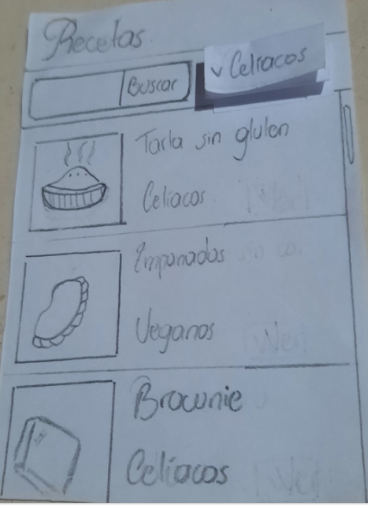 Recetas
Buscar
v Celiacos
Tarta sin gluten
Celiacos
Empanadas
Veganos
Brownie
Celíacos